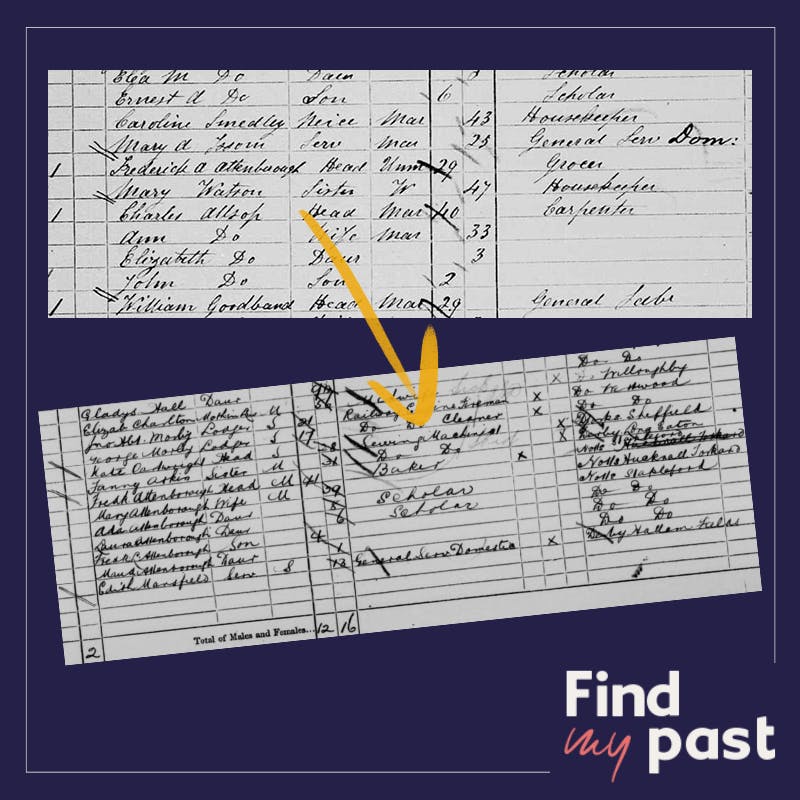 Eliza M Do Daur Scholar
Ernest A Do Son 6 Scholar
Caroline Smedley Neice Mar 43 Housekeeper
Mary A Issom Serv Mar 25 General Serv Dom:
1 Frederick A Attenborough Head Unm 29 Grocer
Mary Watson Sister W 47 Housekeeper
1 Charles Allsop Head Mar 40 Carpenter
Ann Do Wife Mar 33
Elizabeth Do Daur 3
John Do Son 2
1 William Goodband Head Mar 29 General Labr
Do Do
Gladys Hall Daur Do Willoughby
Elizab Charlton Mothin law M Do
Jno Hbt. Morley Lodger S 21 Railway Engine Fireman x Do Do
George Morley Lodger S 17 Do Do Cleaner x Sheffield
Kate Cartwright Head S Sewing Machinist x Derby Long Eaton
Fanny Sister M Do Do Notts
Fredk Attenborough Head M 41 Baker x Notts Hucknall Torkard
Mary Attenborough Wife M 39 Notts Stapleford
Ada Attenborough Daur Scholar Do Do
Laura Attenborough Daur 6 Scholar Do Do
Fredk C Attenborough Son 4 Do Do
Maud Attenborough Daur 1
Edith Mansfield Serv S General Serv Domestic x Derby Hallam Fields
2 Total of Males and Females... 12 16
Find
my past